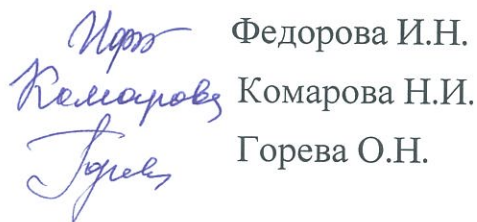 Федорова И.Н.
Комарова Комарова Н.И.
Горев Горева О.Н.